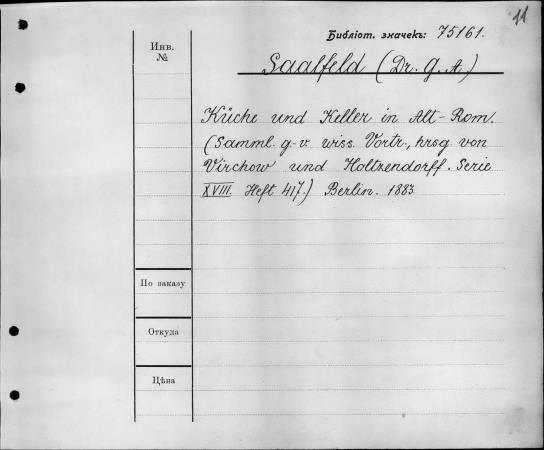 11
Библіот. значекъ: 75161.
Инв.
№
Saalfeld (Dr. G. A.)
Küche und Keller in Alt-Rom.
(Samml. g.-v. wiss. Vortr., hrsg von
Virchow und Holtzendorff. Serie
XVIII. Heft 417.) Berlin. 1883.
По заказу
Откуда
Цѣна